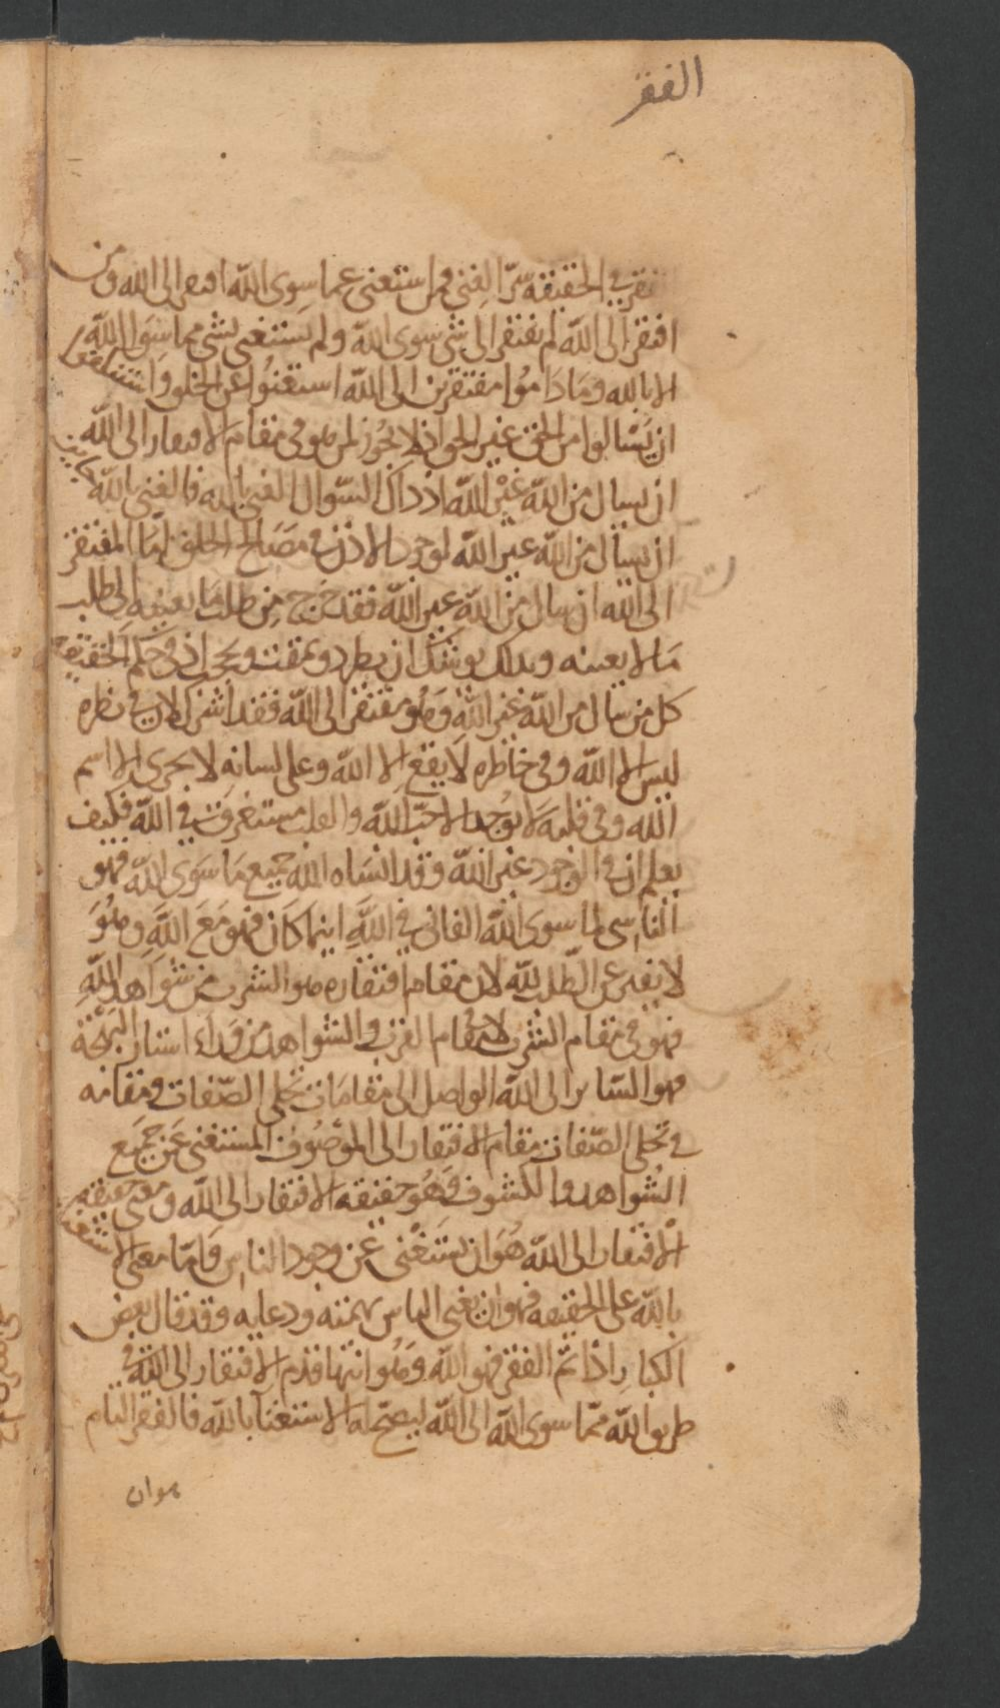 الفقر
الفقر في الحقيقة سرّ الغنى فمن استغنى عما سوى الله افتقر الى الله ومن
افتقر الى الله لم يفتقر الى شي سوى الله ولم يستغنى بشي مما سوا الله
الا بالله وما داموا مفتقرين الى الله استغنوا عن الخلق
ان يسالوا من الحق غير الحق اذ لا يجوز لمن هو في مقام الافتقار الى الله
ان يسال من الله غير الله اذ ذاك السوال الغنى بالله فالغنى بالله
ان يسال من الله غير الله لوجود الاذن في مصالح الخلق امّا المفتقر
الى الله ان سال من الله غير الله فقد خرج من طلب ما يعينه الى طلب
ما لا يعينه وبذلك يوشك ان يطرد ويمقت ويحجب اذ في حكم الحقيقة
كل من سال من الله غير الله وهو مفتقر الى الله فقد اشرك لان في نظره
ليس الا الله وفي خاطره لا يقع الا الله وعلى لسانه لا يجرى الا اسم
الله وفي قلبه لا يوجد الا حبّ الله والقلب مستغرق في الله فكيف
يعلم ان في الوجود غير الله وقد انساه الله جميع ما سوى الله فهو
الناسى لما سوى الله الفانى في الله اينما كان فهو مع الله وهو
لا يفتر عن الطلب لله لان مقام افتقاره هو الشرب من شواهد الله
فهو في مقام الشرب لا مقام القرب والشواهد من وراء استار
فهو السّاير الى الله الواصل الى مقامات تجلى الصّفات ومقامه
في تجلى الصّفات مقام الافتقار الى الموصوف المستغنى عن جميع
الشواهد والكشوف وهو حقيقة الافتقار الى الله ومعنى حقيقة
الافتقار الى الله هو ان يستغنى عن وجود الناس وامّا معنى الاستغنا
بالله على الحقيقة فهو ان يغنى الناس بهمته ودعايه وقد قال بعض
الكبار اذا تمّ الفقر فهو الله وهو انتها قدم الافتقار الى الله في
طريق الله ممّا سوى الله الى الله ليصحّ له الاستغنا بالله فالفقر التام
هو ان